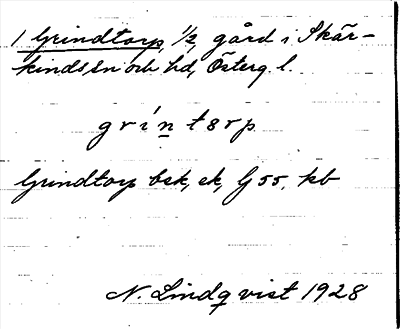 1 Grindtorp, 1/2, gård i Skär-
kinds sn och hd, Österg. l.
grı́n̲t8rp
Grindtorp bek, ek, G55, kb
N. Lindqvist 1928